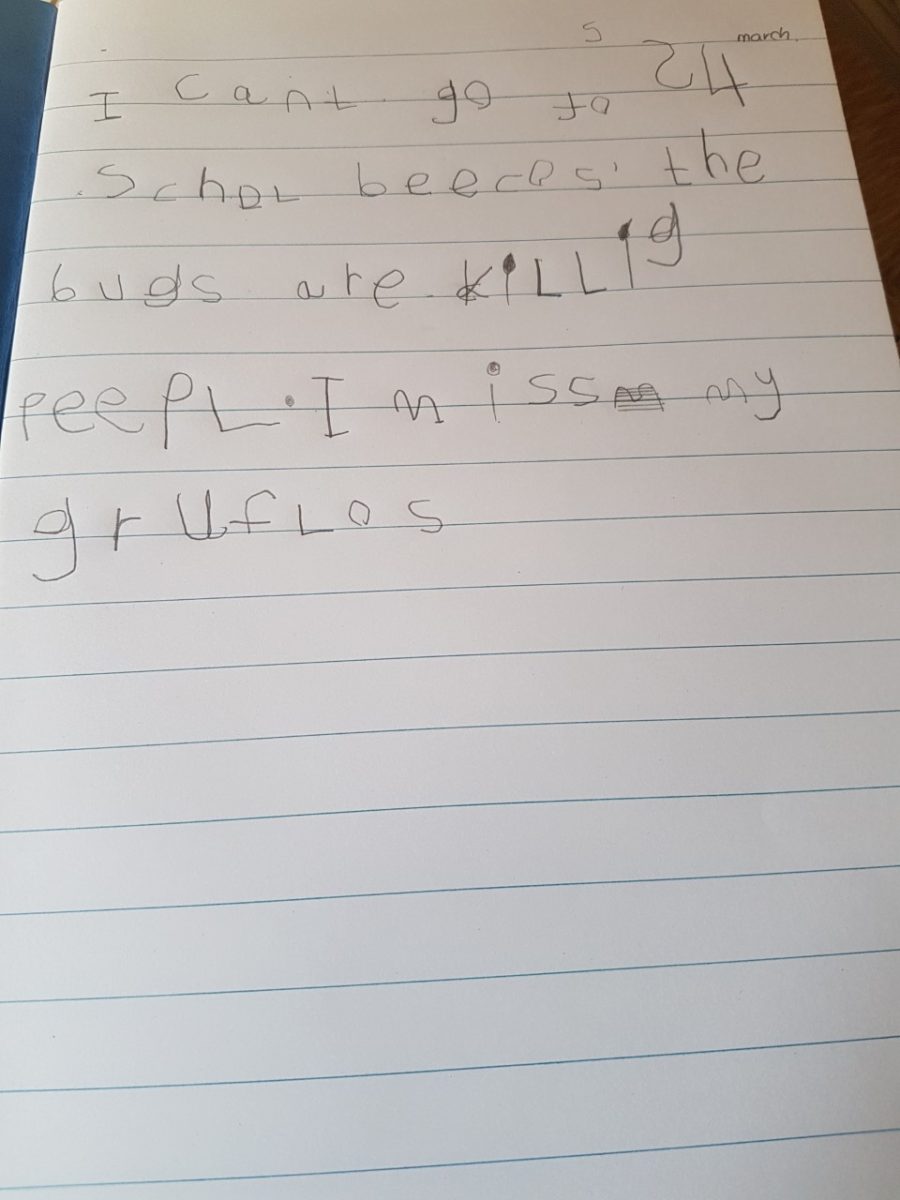 s
march.
I cant go to 24
Schol beecos the
bugs are killig
peepl. I miss my
gruflos